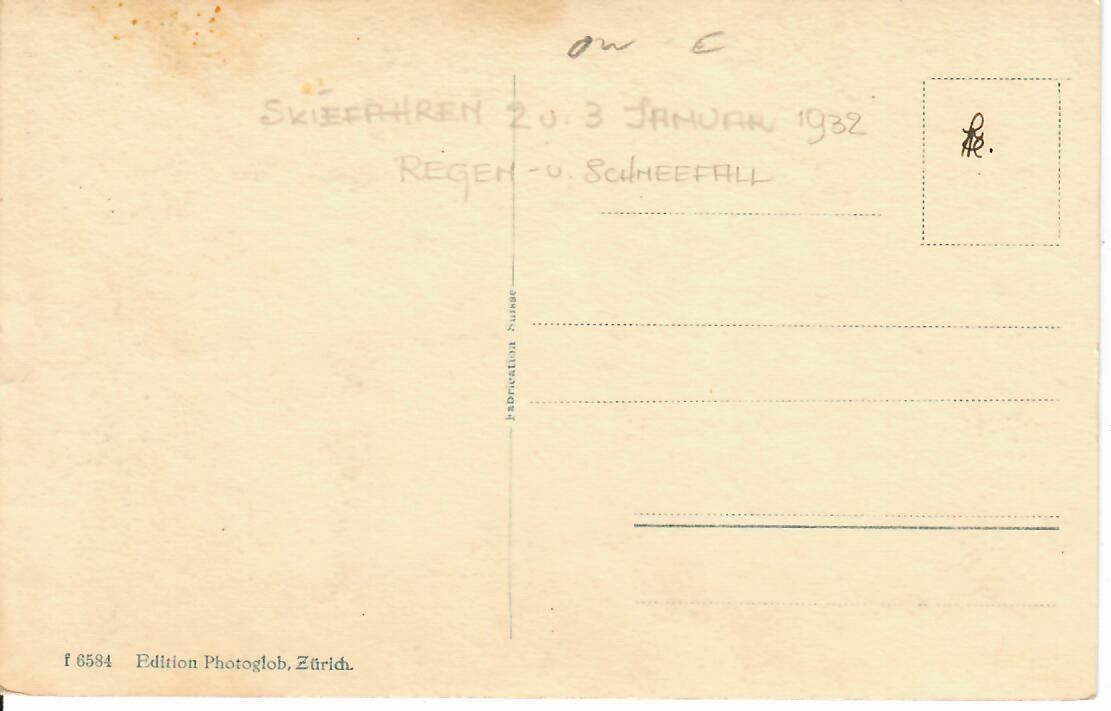 ow E
SKIEFAHREN 2 u. 3 JANUAR 1932
REGEN - u. SCHNEEFALL
Fabrication Suisse
f 6584 Edition Photoglob, Zürich.